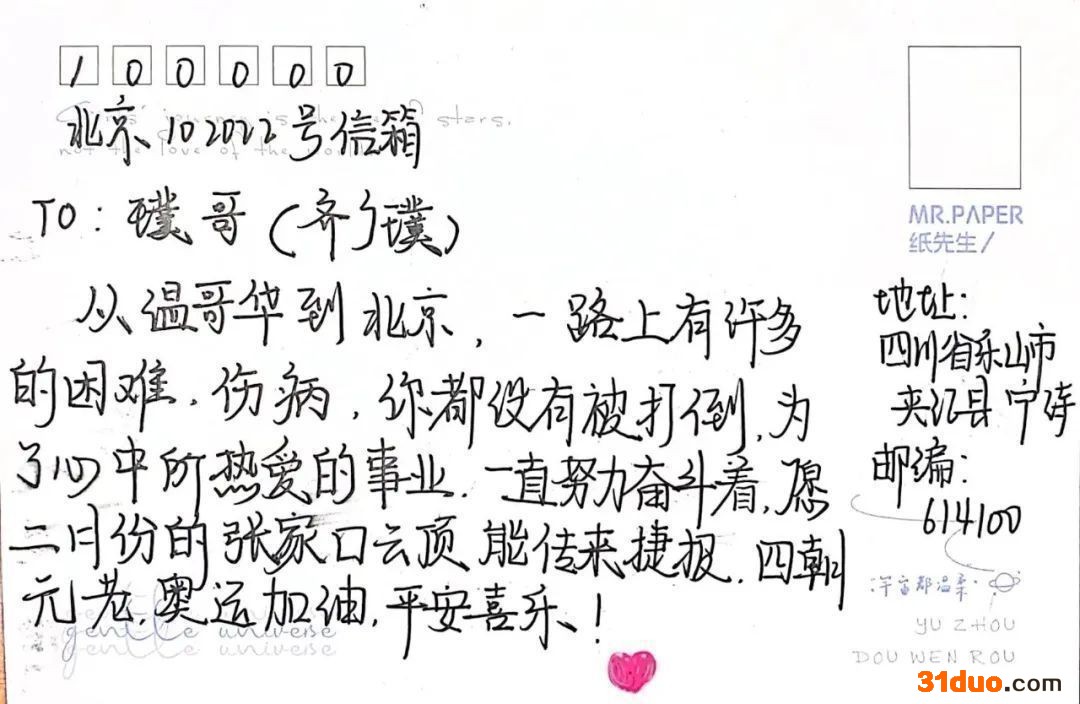 100000
北京102022号信箱
TO:璞哥(齐广璞)
从温哥华到北京,一路上有许多
的困难.伤病,你都没有被打倒,为
了心中所热爱的事业.一直努力奋斗着,愿
二月份的张家口云顶能传来捷报.四朝
元老,奥运加油,平安喜乐!
MR.PAPER
纸先生/
地址:
四川省乐山市
夹江县
邮编:
614100
宇宙都温柔
YU ZHOU
DOU WEN ROU
gentle universe
gentle universe
31duo.com